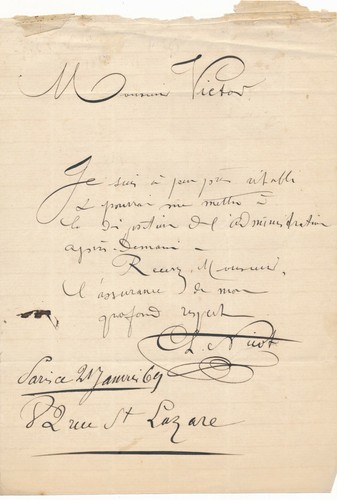 Monsieur Victor
Je suis à peu près rétabli
& pourrai me mettre à
la disposition de l'administration
après-demain -
Recevez, Monsieur,
l'assurance de mon
profond respect
L. Nicot
Paris ce 21 Janvier 69
82 rue St Lazare